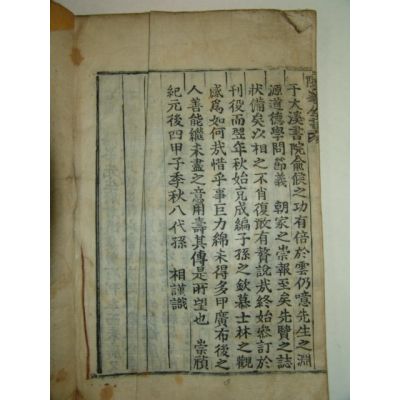 于大溪書院僉候之功有倍於雲仍噫先生之淵
源道德學問節義　朝家之崇報至矣先賢之誌
狀備矣以相之不肖復敢有贅說哉終始叅訂於
刊役而翌年秋始克成編子孫之欽慕士林之觀
感爲如何哉惜乎事巨力綿未得多甲廣布後之
人善能繼未盡之意用壽其傳是所望也　崇禎
紀元後四甲子季秋八代孫　相謹識